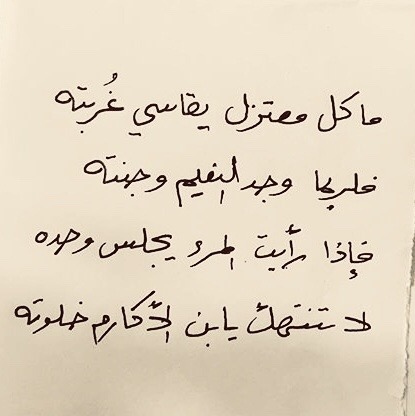 ما كل معتزل يقاسي غُربته
فلربما وجد النعيم وجنته
فإذا رأيت المرء يجلس وحده
لا تنتهك يابن الأكارم خلوته